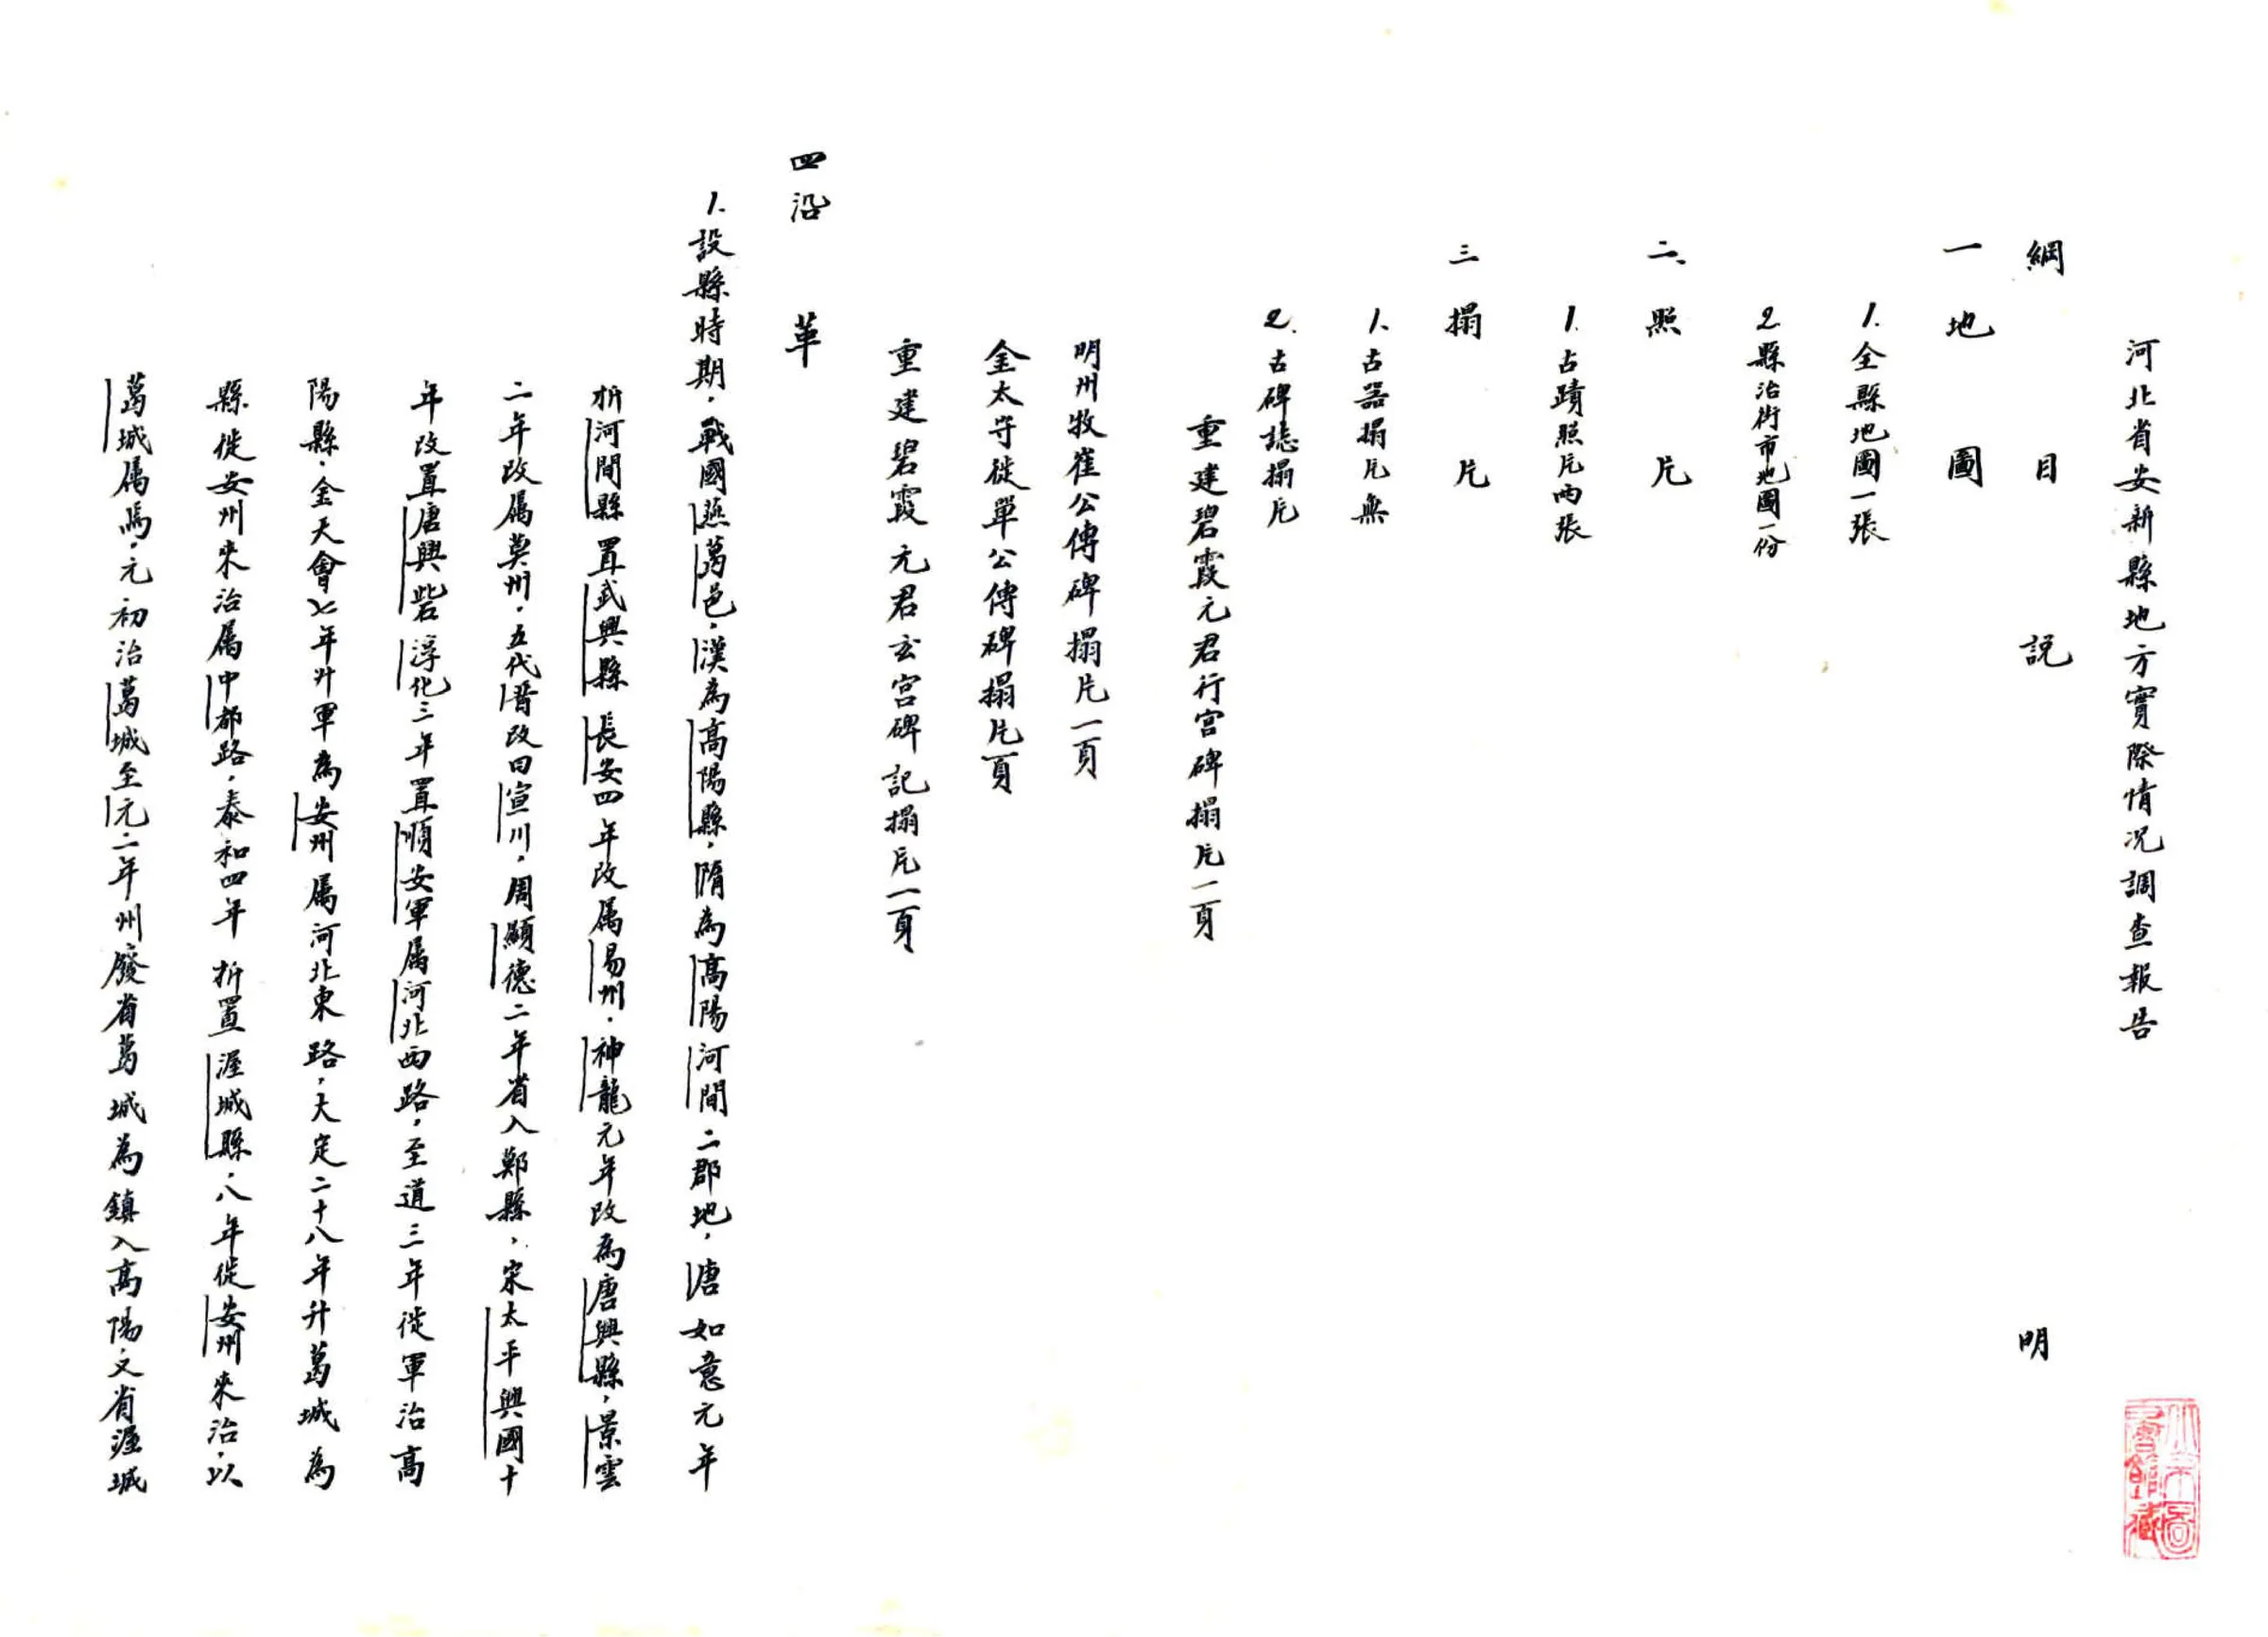 河北省安新縣地方實際情況調查報告
綱目 說明
一地圖
1.全縣地圖一張
2.縣治街市地圖一份
二、照片
1.古蹟照片兩張
三搨片
1.古器搨片無
2.古碑誌搨片
重建碧霞元君行宮碑搨片一頁
明州牧崔公傳碑搨片一頁
金太守徒單公傳碑搨片一頁
重建碧霞元君玄宮碑記搨片一頁
四沿革
1.設縣時期，戰國燕葛邑，漢為高陽縣，隋為高陽河間二郡地，唐如意元年
析河間縣置武興縣長安四年改属易州．神龍元年改為唐興縣，景雲
二年改属莫州，五代晋改曰宣川，周顯德二年省入鄚縣，宋太平興國十
年改置唐興砦淳化三年置順安軍属河北西路，至道三年徙軍治高
陽縣．金天會七年升軍為安州属河北東路，大定二十八年升葛城為
縣徙安州來治属中都路，泰和四年析置渥城縣．八年徙安州來治，以
葛城属焉，元初治葛城至元二年州廢省葛城為鎮入高陽，又省渥城